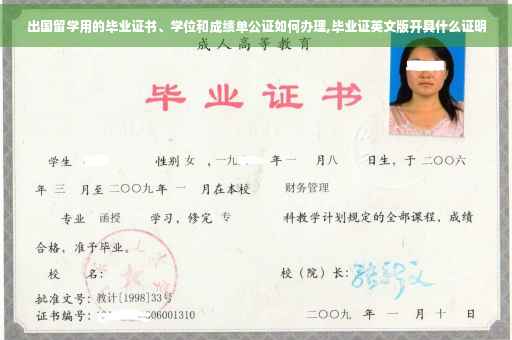 出国留学用的毕业证书、学位和成绩单公证如何办理,毕业证英文版开具什么证明
成人高等教育
毕业证书
学生 性别 女 ,一九 年 一 月八 日生，于 二〇〇六
年 三 月至 二〇〇九 年 一 月在本校 财务管理
专业 函授 学习，修完 专 科教学计划规定的全部课程，成绩
合格，准予毕业。
校 名： 校（院）长：
批准文号：教计[1998]33号
证书编号： 06001310 二〇〇九 年 一 月 十 日